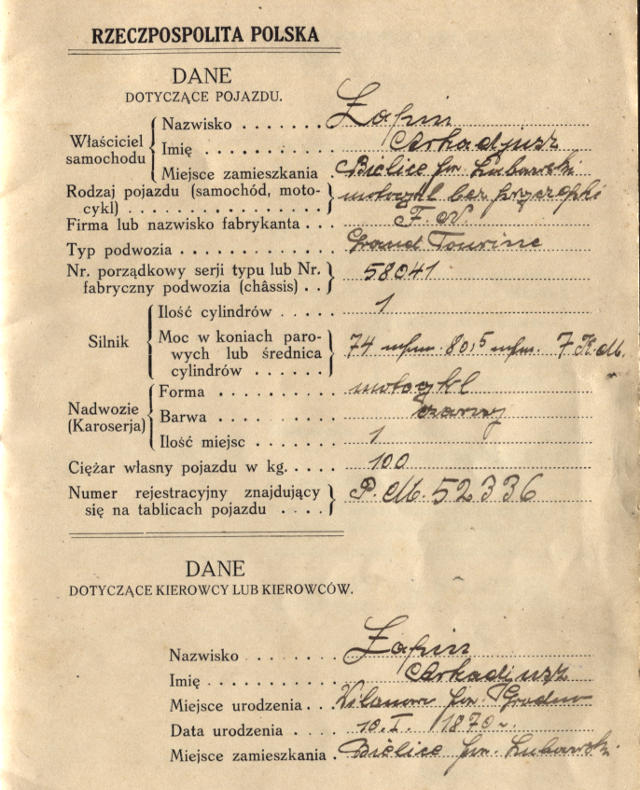 RZECZPOSPOLITA POLSKA
DANE
DOTYCZĄCE POJAZDU.
Właściciel samochodu
Nazwisko . . . . . . . Łapin
Imię . . . . . . . . . Arkadjusz
Miejsce zamieszkania Bielice pow. Lubawski
Rodzaj pojazdu (samochód, moto-
cykl) . . . . . . . . . . . . motocykl bez przyczepki
Firma lub nazwisko fabrykanta . . . F. N.
Typ podwozia . . . . . . . . . . Grand Tourine
Nr. porządkowy serji typu lub Nr.
fabryczny podwozia (châssis) . . 58041
Silnik
Ilość cylindrów . . . . . 1
Moc w koniach paro-
wych lub średnica
cylindrów . . . . . . . 74 m/m. 80,5 m/m. 7 K.M.
Nadwozie (Karoserja)
Forma . . . . . . . . motocykl
Barwa . . . . . . . . czarny
Ilość miejsc . . . . . . 1
Ciężar własny pojazdu w kg. . . . . 100
Numer rejestracyjny znajdujący
się na tablicach pojazdu . . . . P. M. 52336
DANE
DOTYCZĄCE KIEROWCY LUB KIEROWCÓW.
Nazwisko . . . . . . . Łapin
Imię . . . . . . . . . Arkadjusz
Miejsce urodzenia . . . pow. Grodno
Data urodzenia . . . . 10. I. 1870
Miejsce zamieszkania . Bielice pow. Lubawski